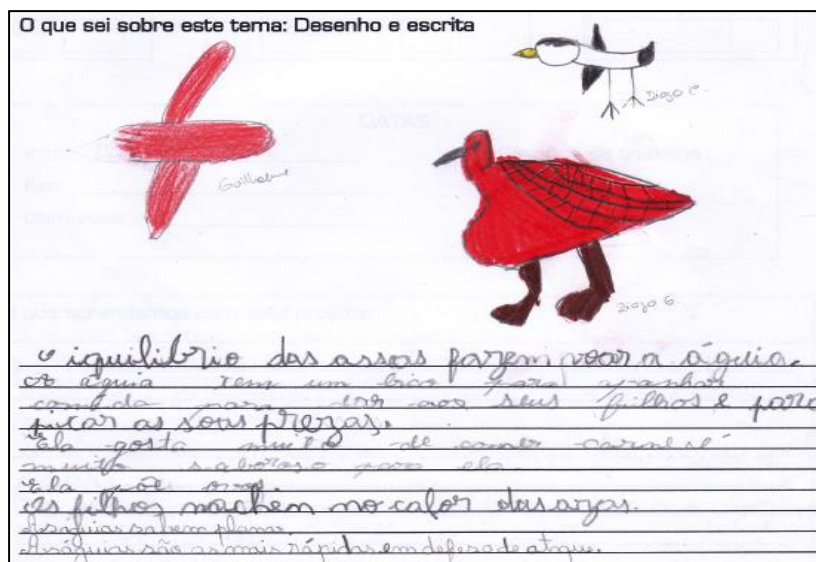 O que sei sobre este tema: Desenho e escrita
Diogo C.
Guilherme
Diogo G.
O iquilibrio das assas fazem voar a águia.
A águia tem um bico para apanhar
comida para dar aos seus filhos e para
picar as sous prezas.
Ela gosta muito de comer carne é
muito saboroso para ela.
Ela põe ovos.
Os filhos nachem no calor das azas.
As águias sabem planar.
As águias são as mais rápidas em defesa de ataque.